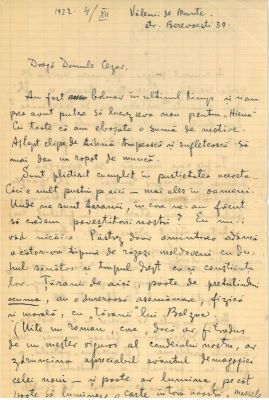 1932 4/XII Vălenii de Munte
str. Berevoești 39.
Dragă Domnule Cezar,
Am fost bolnav în ultimul timp și n'am
prea avut putere să lucrez ceva nou pentru „Hiena"
Cu toate că am eboșate o sumă de motive.
Aștept clipe de tihnă trupească și sufletească să
mai dau un ropot de muncă.
Sunt plictisit cumplit în pustietatea aceasta.
Căci e mult pustiu pe aici — mai ales în oameni.
Unde ne sunt țăranii, în care ne-au făcut
să credem povestitorii noștri? Eu nu-i
văd nicăire. Păstrez doar amintirea adâncă
a câtorva tipuri de răzeși moldoveni cu du-
hul sănătos și trupul drept ca și conștiința
lor. Țăranii de aici, poate de pretutindeni
acuma, au o dureroasă asemănare, fizică
și morală, cu țăranii lui Balzac
(Uite un roman, care, dacă ar fi tradus
de un meșter viguros al condeiului nostru, ar
zdruncina apreciabil avântul demagogiei
celei noui — și poate ar lumina, pe cât
poate să lumineze o carte în țara noastră, mințile